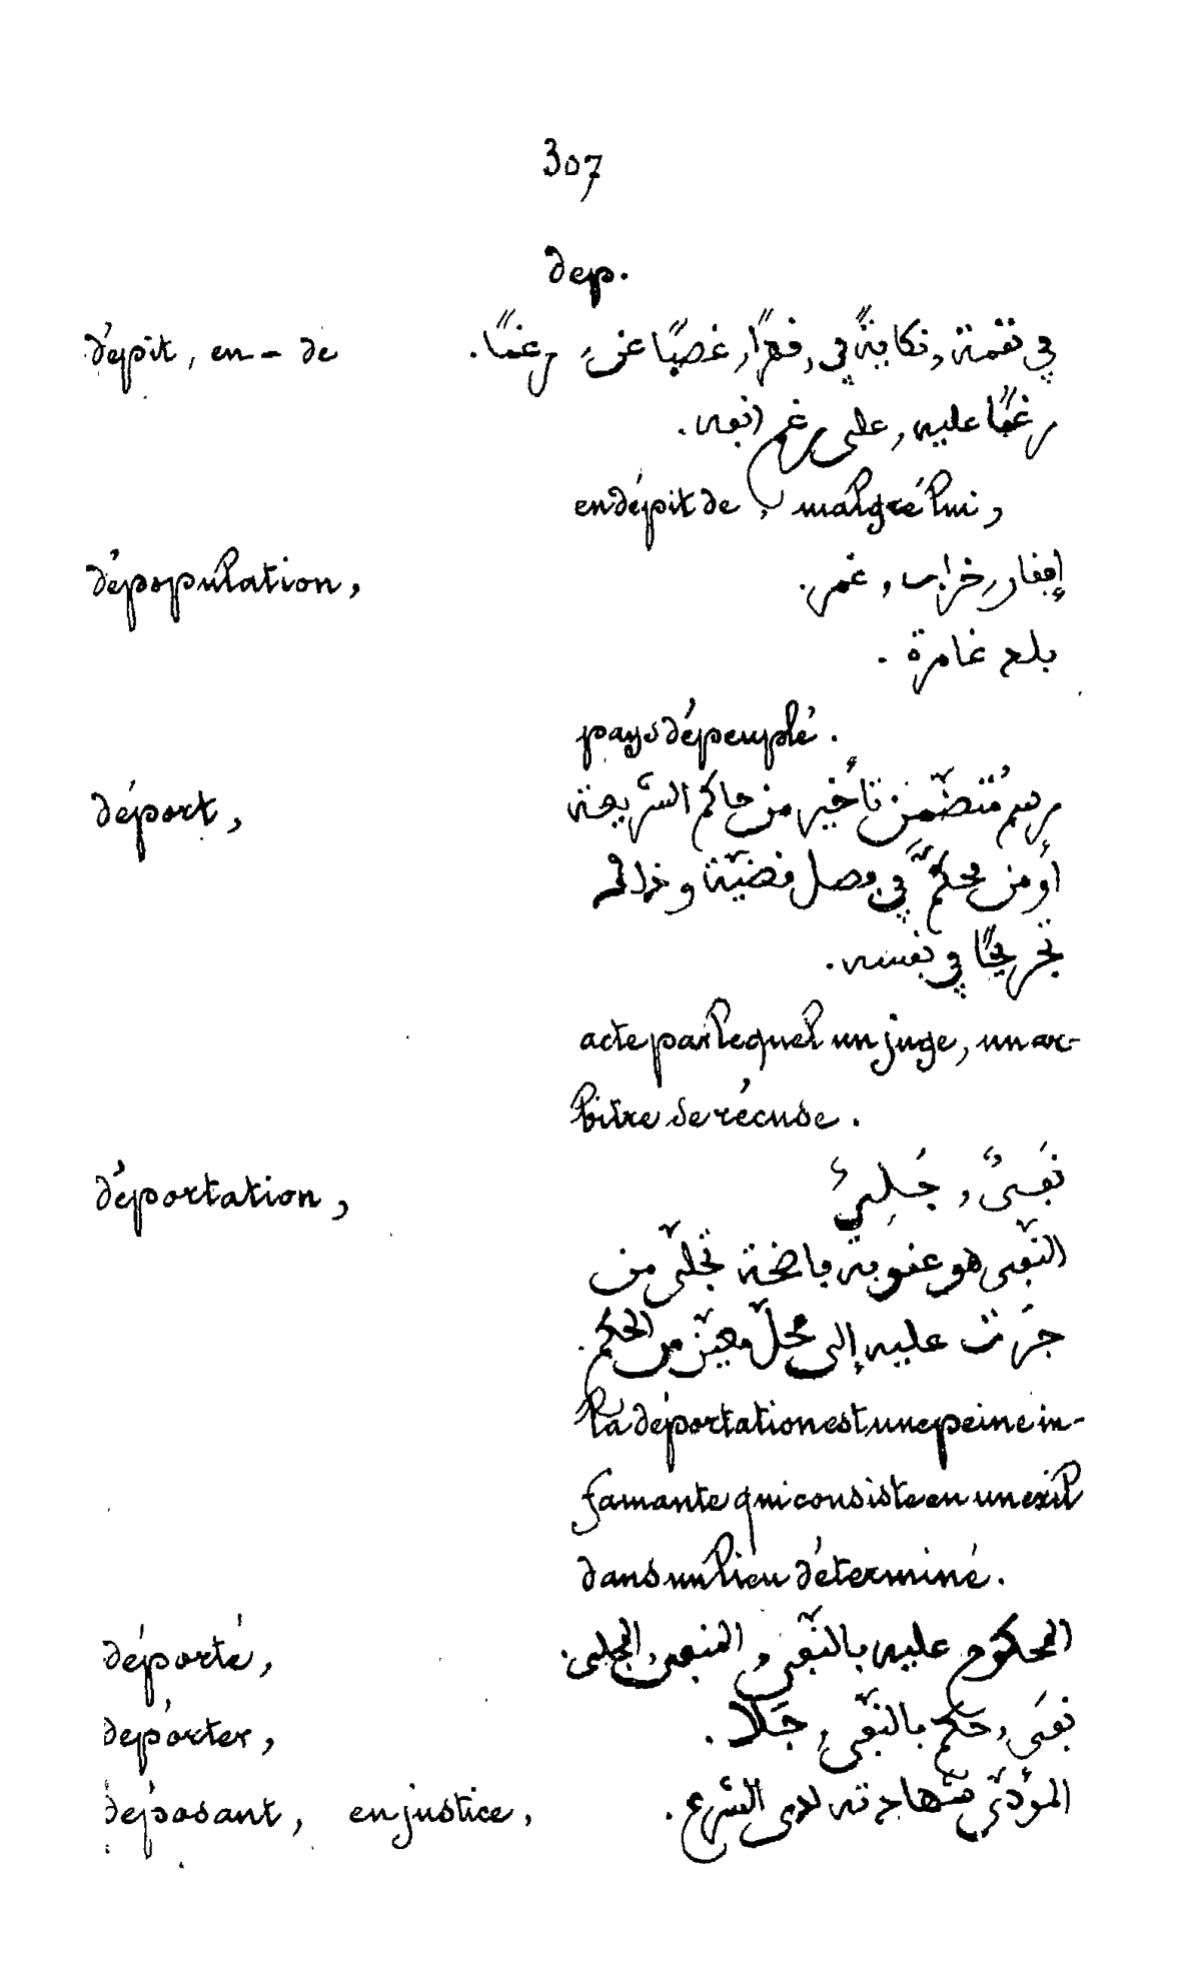 307
dep.
dépit, en - de في نقمة, نكاية في, قهرًا, غصبًا عن, رغمًا.
رغمًا عليه, على رغم انفه.
en dépit de malgré lui,
dépopulation, إقفار, خراب, غمر.
بلد غامرة.
pays dépeuplé.
déport, رسم مُتضَمّن تأخير من حاكم الشريعة
أو من محكمّ في فصل قضيّة و
تجريحًا في نفسه.
acte par lequel un juge, un ar-
bitre se récuse.
déportation, نَفىٌ, جَلِىٌ
النّفى هو عقوبة فاضحة تجلى من
جرَت عليه إلى محلّ معيّن من الحكم.
la déportation est une peine in-
famante qui consiste en un exil
dans un lieu déterminé.
déporté, المحكوم عليه بالنّفى, المنفى, المجلى.
déporter, نفَى, حَكم بالنّفى, جَلا.
déposant, en justice, المؤدّي شهادته لدى الشرع.